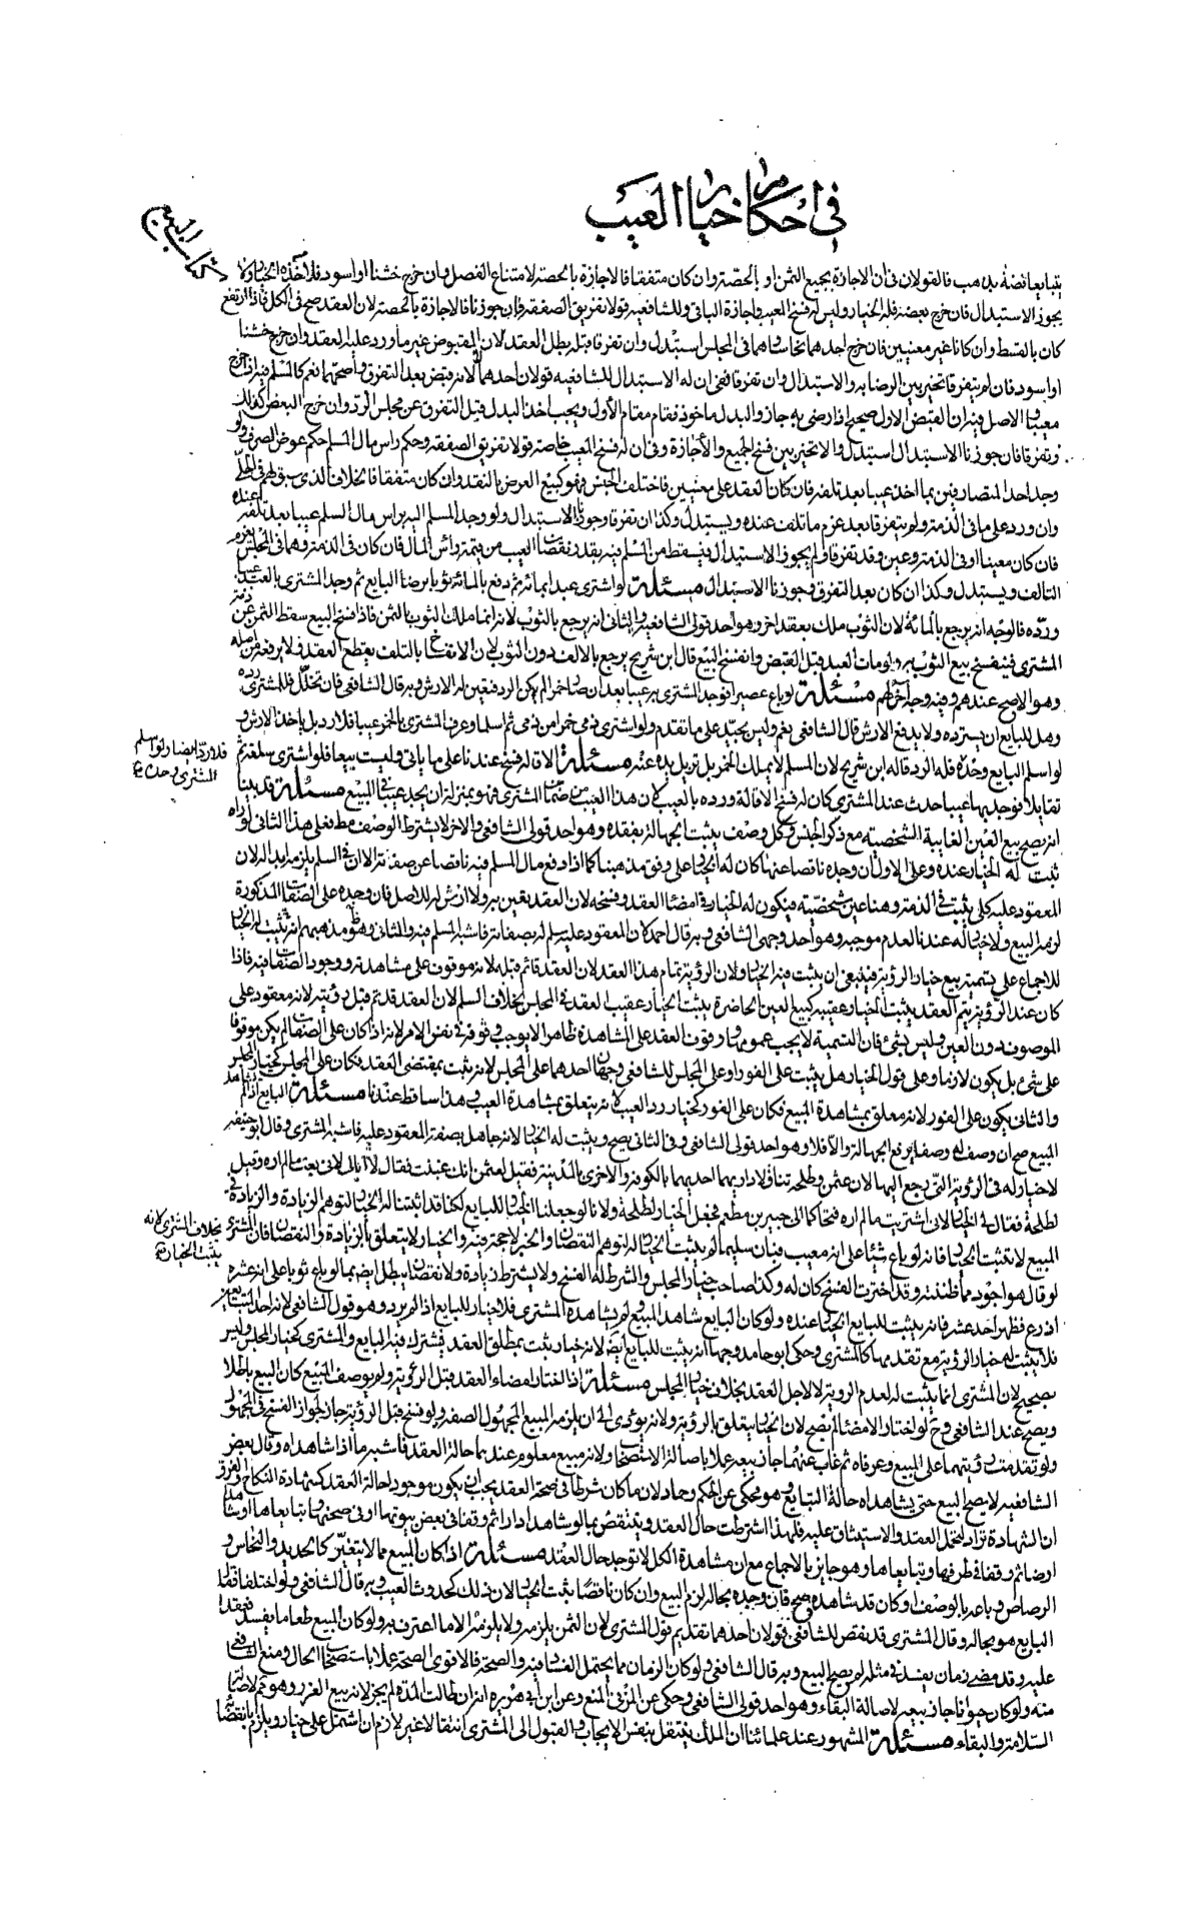 في احكام خيار العيب
كتاب البيع
يتبايعا فضة بذهب فالقولان في ان الاجازة بجميع الثمن او بالحصة وان كان متفقا فالاجازة بالحصة لامتناع الفضل وان خرج خشنا او اسود فله الخيار ولا
يجوز الاستبدال فان خرج بعضه فله الخيار وليس له فسخ العيب واجازة الباقي وللشافعية قولا تفريق الصفقة فان جوزنا فالاجازة بالحصة لان العقد صح في الكل فاذا ارتفع
كان بالقسط وان كانا غير معنيين فان خرج احدهما نحاسا وهما في المجلس استبدل وان تفرقا قبله بطل العقد لان المقبوض غير ما ورد عليه العقد وان خرج خشنا
او اسود فان لم يتفرقا تخير بين الرضا به والاستبدال وان تفرقا ففي ان له الاستبدال للشافعية قولان احدهما لا لانه قبض بعد التفرق واصحهما نعم كالمسلم فيه اذا خرج
معيبا والاصل فيه ان القبض الاول صحيح اذ لو رضي به جاز والبدل ماخوذ فقام مقام الاول ويجب اخذ البدل قبل التفرق عن مجلس الرد وان خرج البعض كذلك
وتفرقا فان جوزنا الاستبدال استبدل والا تخير بين فسخ الجميع والاجازة وفي ان له فسخ المعيب خاصة قولا تفريق الصفقة وحكم راس مال السلم حكم عوض الصرف ولو
وجد احد المتصارفين بما اخذ عيبا بعد تلفه فان كان العقد على معنيين فاختلف الجنس فهو كبيع العرض بالنقد وان كان متفقا فالخلاف الذي سبق لهم في الحلي
وان ورد على ما في الذمة ولم يتفرقا بعد غرم ما تلف عنده ويستبدل وكذا ان تفرقا وجوزنا الاستبدال ولو وجد المسلم اليه براس مال السلم عيبا بعد تلفه عنده
فان كان معينا او في الذمة وعين وقد تفرقا ولم يجوز الاستبدال فيسقط من المسلم فيه بقدر نقصان العيب من قيمة راس المال فان كان في الذمة وهما في المجلس يغرم
التالف ويستبدل وكذا ان كان بعد التفرق وجوزنا الاستبدال مسئلة لو اشترى عبدا بمائة ثم دفع بالمائة ثوبا برضا البايع ثم وجد المشتري بالعبد عيبا
ورده فالوجه انه يرجع بالمائة لان الثوب ملك بعقد اخر وهو احد قولي الشافعية والثاني انه يرجع بالثوب لانه انما ملك الثوب بالثمن فاذا فسخ البيع سقط الثمن عن ذمة
المشتري فينفسخ بيع الثوب به ولو مات العبد قبل القبض وانفسخ البيع قال ابن شريح يرجع بالالف دون الثوب لان الانفساخ بالتلف يقطع العقد ولا يرفعه من اصله
وهو الاصح عندهم وفيه وجه آخر لهم مسئلة لو باع عصيرا فوجد المشتري به عيبا بعد ان صار خمرا لم يكن الرد فتعين له الارش وبه قال الشافعي فان تخلل فللمشتري رده
وهل للبايع ان يسترده ولا يدفع الارش قال الشافعي نعم وليس بجيد على ما تقدم ولو اشترى ذمي خمرا من ذمي ثم اسلما وعرف المشتري بالخمر عيبا فلا رد بل ياخذ الارش و
لو اسلم البايع وحده فله الرد قاله ابن شريح لان المسلم لا يملك الخمر بل تزيل يده عنه مسئلة الاقالة فسخ عندنا على ما ياتي وليست بيعا فلو اشترى سلعة ثم
تقايلا فوجد بها عيبا حدث عند المشتري كان له فسخ الاقالة ورده بالعيب لان هذا العيب من ضمان المشتري فهو بمنزلة ان يجد عيبا في المبيع مسئلة قد بينا
انه يصح بيع العين الغايبة الشخصية مع ذكر الجنس وكل وصف يثبت الجهالة بفقده وهو احد قولي الشافعي والآخر لا يشترط الوصف مطلقا فعلى هذا الثاني لو رآه
ثبت له الخيار عنده وعلى الاول ان وجده ناقصا عنها كان له الخيار على وفق مذهبنا كما اذا دفع مال المسلم فيه ناقصا عن صفته الا ان في السلم يلزمه ابداله لان
المعقود عليه كلي يثبت في الذمة وهنا عين شخصية فيكون له الخيار في امضاء العقد وفسخه لان العقد تعين به ولا ارش له للاصل فان وجده على الصفات المذكورة
لزم البيع ولا خيار له عندنا لعدم موجبه وهو احد وجهي الشافعي وبه قال احمد لان المعقود عليه سلم له بصفاته فاشبه المسلم فيه والثاني وهو مذهبهم انه يثبت له الخيار
للاجماع على تسمية بيع خيار الرؤية فينبغي ان يثبت فيه الخيار ولان الرؤية تمام هذا العقد لان العقد قائم قبله لانه موقوف على مشاهدته ووجود الصفات فيه فاذا
كان عند الرؤية يتم العقد يثبت الخيار عقيبه كبيع العين الحاضرة يثبت الخيار عقيب العقد في المجلس بخلاف السلم لان العقد قد تم قبل رؤيته لانه معقود على
الموصوف دون العين وليس بشيء فان التسمية لا يجب عمومها ووقوف العقد على المشاهدة ظاهرا لا يوجب وقوفه في نفس الامر لانه اذا كان على الصفات لم يكن موقوفا
على شيء بل يكون لازما وعلى قول الخيار هل يثبت على الفور او على المجلس للشافعي وجهان احدهما على المجلس لانه ثبت بمقتضى العقد فكان على المجلس كخيار المجلس
والثاني يكون على الفور لانه معلق بمشاهدة المبيع فكان على الفور كخيار رد العيب لانه يتعلق بمشاهدة العيب وهذا ساقط عندنا مسئلة البايع اذا لم يشاهد
المبيع صح ان وصف له وصفا يرفع الجهالة والا فلا وهو احد قولي الشافعي وفي الثاني يصح ويثبت له الخيار لانه جاهل بصفة المعقود عليه فاشبه المشتري وقال ابو حنيفة
لا خيار له في الرؤية التي رجع اليها لان عثمن وطلحة تناقلا داريهما احديهما بالكوفة والاخرى بالمدينة فقيل لعثمن انك غبنت فقال لا ابالي لاني بعت ما لم اره وقيل
لطلحة فقال لي الخيار لاني اشتريت ما لم اره فتحاكما الى جبير بن مطعم فجعل الخيار لطلحة ولانا لو جعلنا الخيار للبايع لكنا قد اثبتنا له الخيار لتوهم الزيادة والزيادة في
المبيع لا تثبت الخيار فانه لو باع شيئا على انه معيب فبان سليما لم يثبت الخيار له لتوهم النقصان والخبر لا حجة فيه والخيار لا يتعلق بالزيادة والنقصان فان المشتري
لو قال هو اجود مما ظننته وقد اخترت الفسخ كان له وكذا صاحب خيار المجلس والشرط له الفسخ ولا يشترط زيادة ولا نقصان يبطل ايضا بما لو باع ثوبا على انه عشرة
اذرع فظهر احد عشر فانه يثبت للبايع الخيار عنده ولو كان البايع شاهد المبيع ولم يشاهده المشتري فلا خيار للبايع اذا لم يرد وهو قول الشافعي لانه احد المتبايعين
فلا يثبت له خيار الرؤية مع تقدمها كالمشتري وحكى ابو حامد وجها انه يثبت للبايع ايضا لانه خيار يثبت بمطلق العقد فيشترك فيه البايع والمشتري كخيار المجلس وليس
بصحيح لان المشتري انما يثبت له لعدم الروية لا لاجل العقد بخلاف خيار المجلس مسئلة اذا اختار امضاء العقد قبل الرؤية ولم يوصف المبيع كان البيع باطلا
ويصح عند الشافعي وح لو اختار الامضاء لم يصح لان الخيار يتعلق بالرؤية ولانه يؤدي الى ان يلزمه المبيع المجهول الصفة ولو فسخ قبل الرؤية جاز لجواز الفسخ في المجهول
ولو تقدمت رؤيتهما على المبيع وعرفاه ثم غاب عنهما جاز بيعه عملا باصالة الاستصحاب ولانه مبيع معلوم عندهما حالة العقد فاشبه ما اذا شاهداه وقال بعض
الشافعية لا يصح البيع حتى يشاهداه حالة التبايع وهو محكي عن الحكم وحماد لان ما كان شرطا في صحة العقد يجب ان يكون موجودا حالة العقد كشهادة النكاح والفرق
ان الشهادة تراد لتحمل العقد والاستيثاق عليه فلهذا اشترطت حال العقد وينتقض بما لو شاهدا دارا ثم وقفا في بعض بيوتها او في صحنها وتبايعاها او شاهدا
ارضا ثم وقفا في طرفها وتبايعاها وهو جايز بالاجماع مع ان مشاهدة الكل لا توجد حال العقد مسئلة اذا كان المبيع مما لا يتغير كالحديد والنحاس و
الرصاص وباعه بالوصف او كان قد شاهده صح فان وجده بحاله لزم البيع وان كان ناقصا يثبت الخيار لان ذلك كحدوث العيب وبه قال الشافعي ولو اختلفا فقال
البايع هو بحاله وقال المشتري قد نقص للشافعي قولان احدهما تقديم قول المشتري لان الثمن يلزمه ولا يلزمه الا ما اعترف به ولو كان المبيع طعاما يفسد فعقدا
عليه وقد مضى زمان يفسد في مثله لم يصح البيع وبه قال الشافعي ولو كان الزمان مما يحتمل الفساد فيه والصحة فالاقوى الصحة عملا باستصحاب الحال ومنع الشافعي
منه ولو كان حيوانا جاز بيعه لاصالة البقاء وهو احد قولي الشافعي وحكي عن المزني المنع وعن ابن ابي هريرة انه ان طالت المدة لم يجز لانه بيع الغرر وهو مم لاصالة
السلامة والبقاء مسئلة المشهور عند علمائنا ان الملك ينتقل بنفس الايجاب والقبول الى المشتري انتقالا غير لازم ان اشتمل على خيار ويلزم بانقضاء
فله رد ايضا ولو اسلم
المشتري وحده
بخلاف المشتري لانه
يثبت الخيار